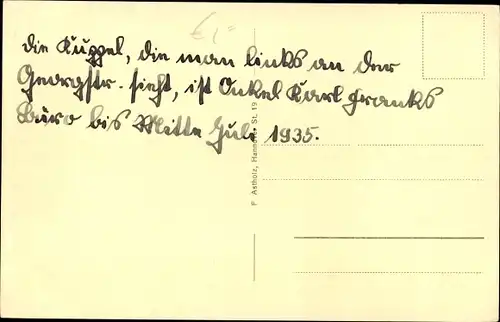 € 1,=
die Kuppel, die man links an der
Georgstr. sieht, ist Onkel Karl Franks
Büro bis Mitte Juli 1935.
P. Astholz, Hannover, St. 19